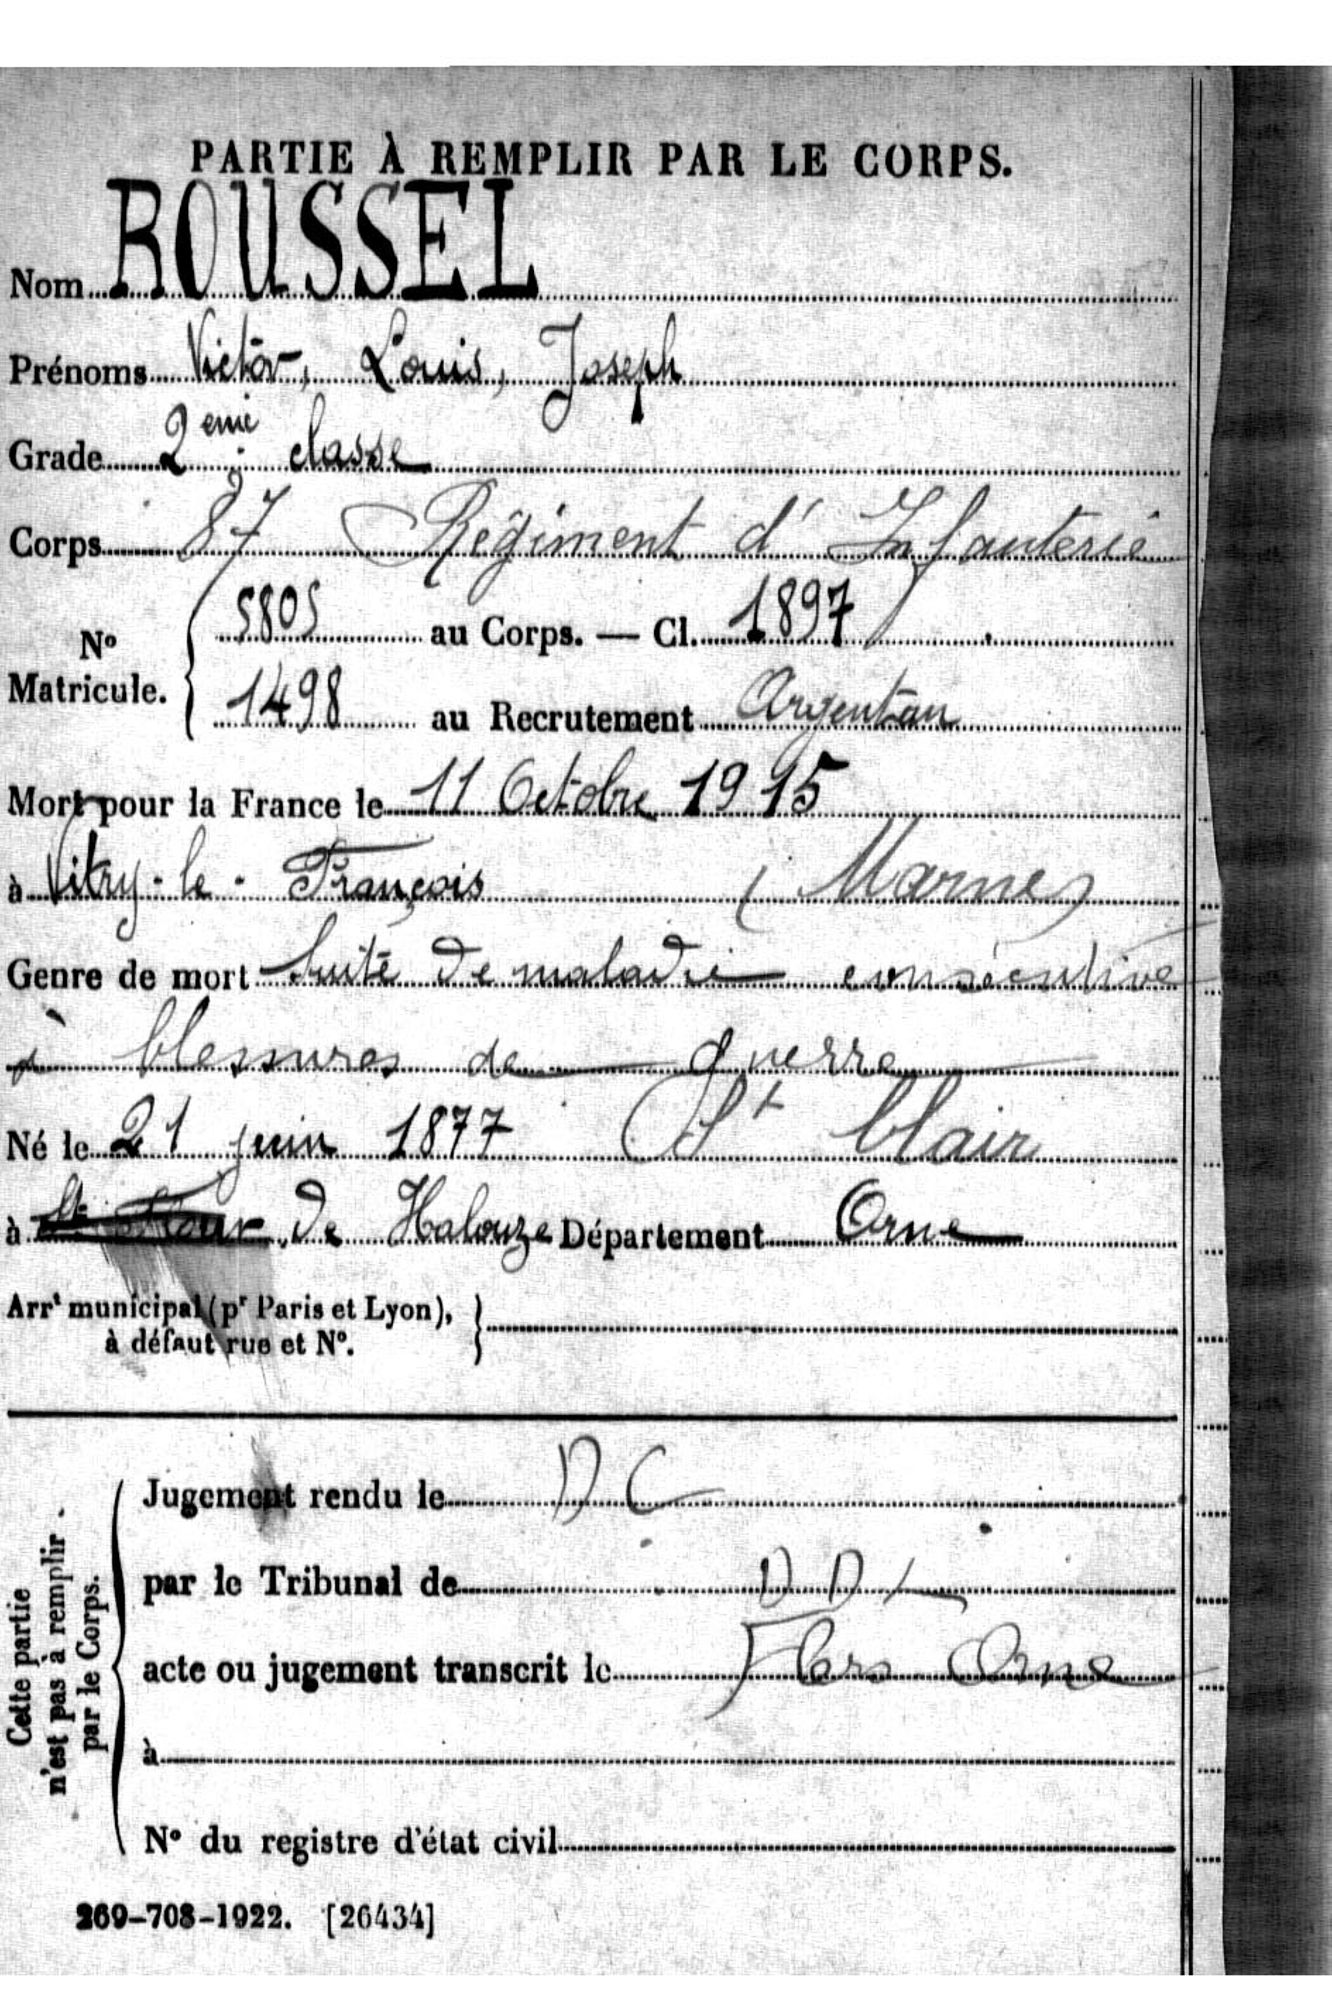 PARTIE À REMPLIR PAR LE CORPS.
Nom ROUSSEL
Prénoms Victor, Louis, Joseph
Grade 2eme classe
Corps 87 Régiment d'Infanterie
5805 au Corps. — Cl. 1897
No
Matricule.
1498 au Recrutement Argentan
Mort pour la France le 11 Octobre 1915
à Vitry-le-François (Marne)
Genre de mort Suite de maladie consécutive
à blessures de guerre
Né le 21 juin 1877 St Clair
à de Halouze Département Orne
Arrt municipal (pr Paris et Lyon),
à défaut rue et No.
Cette partie
n'est pas à remplir
par le Corps.
Jugement rendu le D C
par le Tribunal de D D
acte ou jugement transcrit le Flers Orne
à
No du registre d'état civil
269-708-1922. [26434]